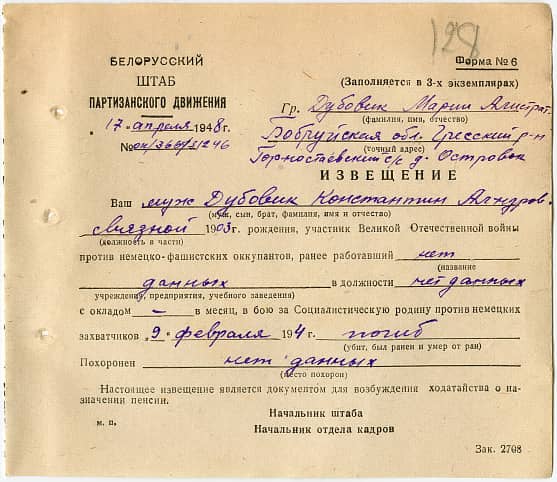 128
БЕЛОРУССКИЙ
ШТАБ
ПАРТИЗАНСКОГО ДВИЖЕНИЯ
17 апреля 1948г.
№
Форма № 6
(Заполняется в 3-х экземплярах)
Гр. Дубовик Марии
(фамилия, имя, отчество)
Бобруйская обл. Гресский р-н
(точный адрес)
Горностаевский с/с д. Островок
ИЗВЕЩЕНИЕ
Ваш муж Дубовик Константин
(муж, сын, брат, фамилия, имя и отчество)
связной 1903г. рождения, участник Великой Отечественной войны
(должность в части)
против немецко-фашистских оккупантов, ранее работавший нет
(название
данных в должности нет данных
учреждения, предприятия, учебного заведения)
с окладом – в месяц, в бою за Социалистическую родину против немецких
захватчиков „9„ февраля 194 г. погиб
(убит, был ранен и умер от ран)
Похоронен нет данных
(место похорон)
Настоящее извещение является документом для возбуждения ходатайства о на-
значении пенсии.
Начальник штаба
м. п.
Начальник отдела кадров
Зак. 2708